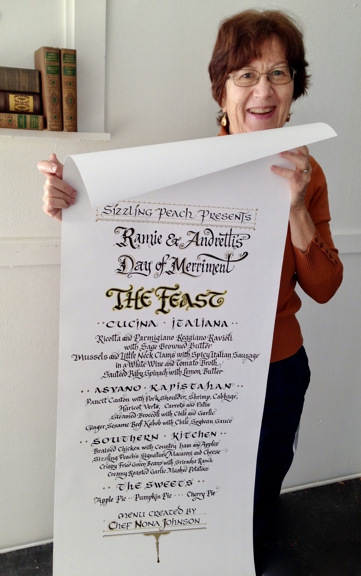 Sizzling Peach Presents
Ramie & Andrellis
Day of Merriment
The Feast
Cucina Italiana
Ricotta and Parmigiano Reggiano Ravioli
with Sage Browned Butter
Mussels and Little Neck Clams with Spicy Italian Sausage
in a White Wine and Tomato Broth
Sautéed Baby Spinach with Lemon Butter
Asyano Kapistahan
Pancit Canton with Pork Shoulder, Shrimp, Cabbage,
Haricot Verts, Carrots and
Steamed Broccoli with Chili and Garlic
Ginger Sesame Beef Kabob with Chile Soybean Sauce
Southern Kitchen
Braised Chicken with Country Ham and Apples
Sizzling Peach's Signature Macaroni and Cheese
Crispy Fried Green Beans with Sriracha Ranch
Creamy Roasted Garlic Mashed Potatoes
The Sweets
Apple Pie Pumpkin Pie Cherry Pie
Menu Created by
Chef Nona Johnson